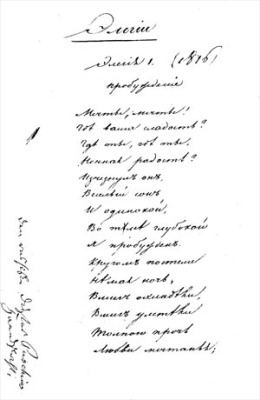 Элегіи
Элегія 1. (1816)
пробужденіе
Мечты, мечты!
Гдѣ ваша сладость?
Гдѣ ты, гдѣ ты,
Ночная радость?
Исчезнулъ онъ,
Веселый сонъ
И одинокой,
Во тьмѣ глубокой
Я пробужденъ.
Кругомъ постели
Нѣмая ночь,
Вмигъ охладѣли,
Вмигъ улетѣли
Толпою прочь
Любви мечтанья;